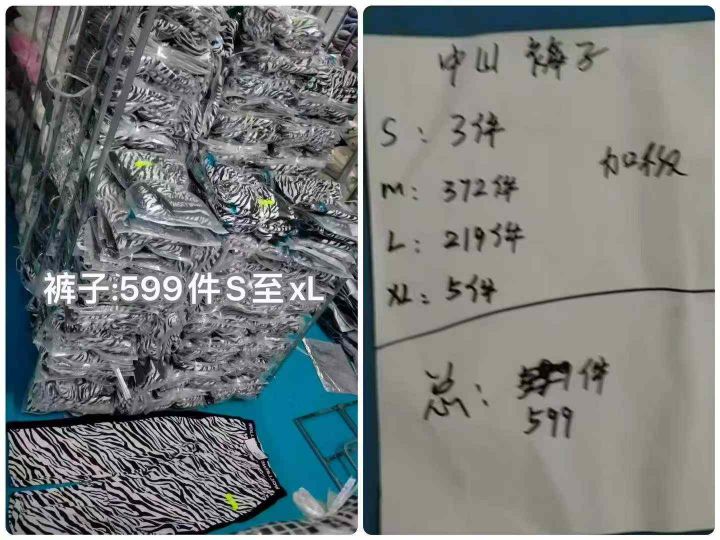 裤子:599件S至xL
中山 裤子
S：3件
加权
M：372件
L：219件
XL：5件
总：件
599